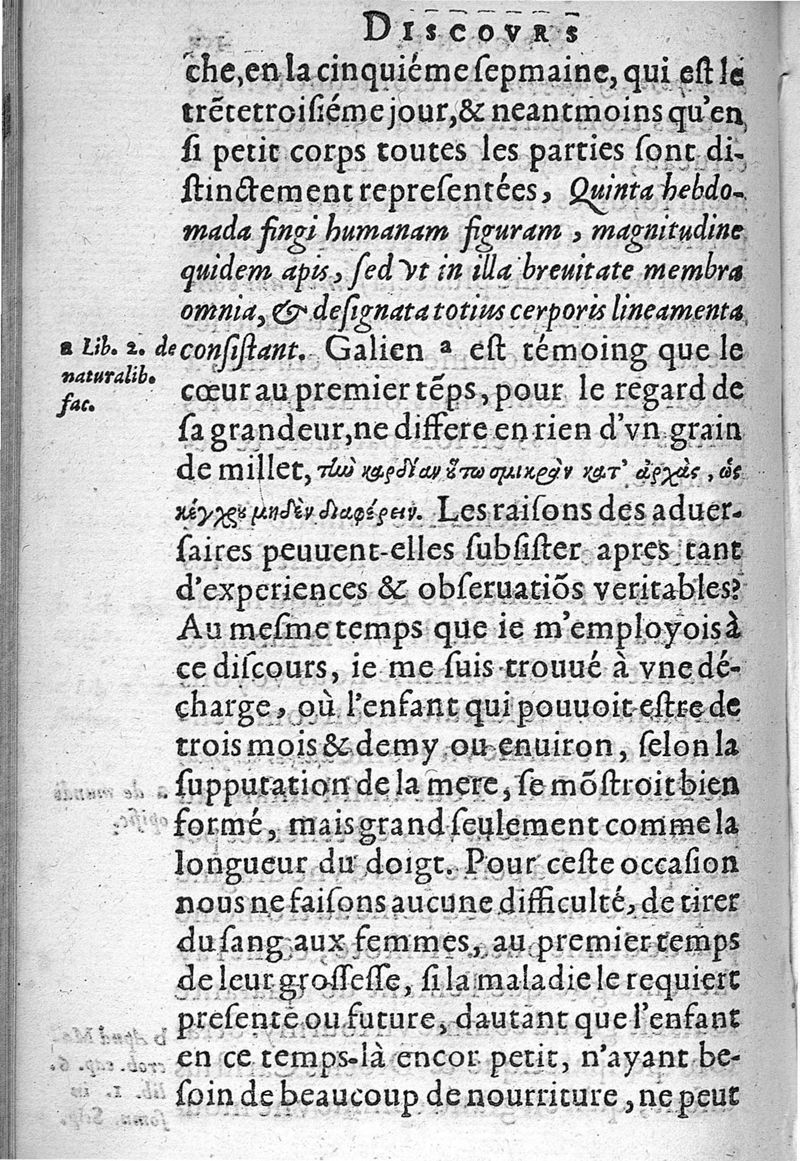 DISCOVRS
che, en la cinquiéme ſepmaine, qui eſt le
trẽtetroiſiéme jour, & neantmoins qu'en
ſi petit corps toutes les parties ſont di-
ſtinctement repreſentées, Quinta hebdo-
mada fingi humanam figuram, magnitudine
quidem apis, ſed vt in illa breuitate membra
omnia, & deſignata totius cerporis lineamenta
conſiſtant. Galien a eſt témoing que le
a Lib. 2. de
naturalib.
fac.
cœur au premier tẽps, pour le regard de
ſa grandeur, ne differe en rien d'vn grain
de millet, τὴν καρδίαν οὕτω σμικρὰν κατ' ἀρχὰς, ὡς
κέγχρου μηδὲν διαφέρειν. Les raiſons des aduer-
ſaires peuuent-elles ſubſiſter apres tant
d'experiences & obſeruatiõs veritables?
Au meſme temps que ie m'employois à
ce diſcours, ie me ſuis trouué à vne dé-
charge, où l'enfant qui pouuoit eſtre de
trois mois & demy ou enuiron, ſelon la
ſupputation de la mere, ſe mõſtroit bien
formé, mais grand ſeulement comme la
longueur du doigt. Pour ceſte occaſion
nous ne faiſons aucune difficulté, de tirer
du ſang aux femmes, au premier temps
de leur groſſeſſe, ſi la maladie le requiert
preſente ou future, dautant que l'enfant
en ce temps-là encor petit, n'ayant be-
ſoin de beaucoup de nourriture, ne peut